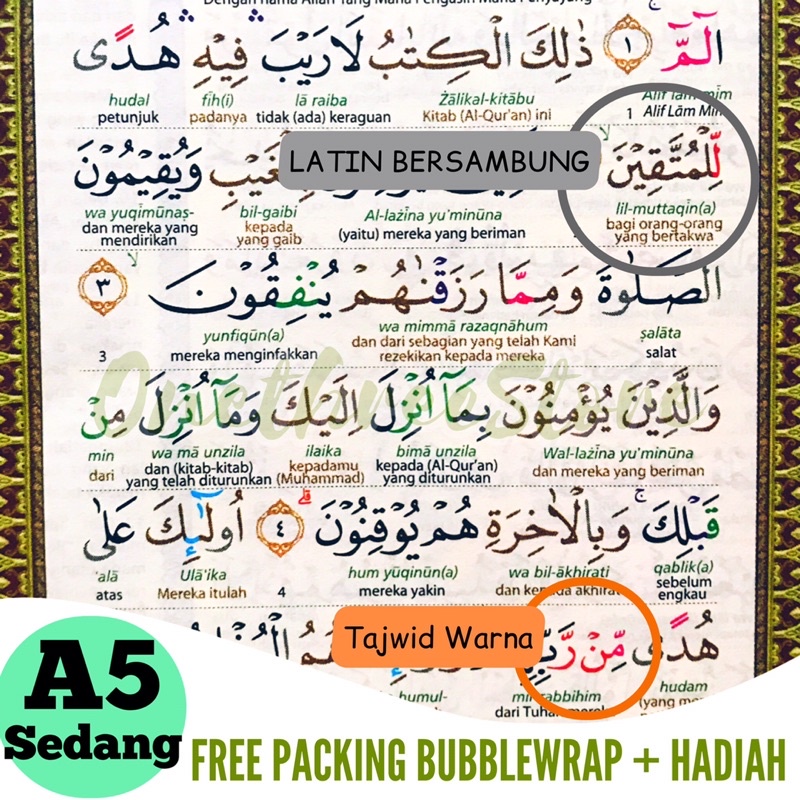 Dengan nama Allah Yang Maha Pengasih Maha Penyayang
الۤمّۤ ۚ ١ ذٰلِكَ الْكِتٰبُ لَا رَيْبَ ۛ فِيْهِ ۛ هُدًى
Alif lām mīm Żālikal-kitābu lā raiba fīh(i) hudal
1 Alif Lām Mīm Kitab (Al-Qur'an) ini tidak (ada) keraguan padanya petunjuk
لِّلْمُتَّقِيْنَ ۙ
الْغَيْبِ وَيُقِيْمُوْنَ
LATIN BERSAMBUNG
lil-muttaqīn(a) Al-lażīna yu'minūna bil-gaibi wa yuqīmūnaṣ-
bagi orang-orang yang bertakwa (yaitu) mereka yang beriman kepada yang gaib dan mereka yang mendirikan
الصَّلٰوةَ وَمِمَّا رَزَقْنٰهُمْ يُنْفِقُوْنَ ۙ ٣
ṣalāta wa mimmā razaqnāhum yunfiqūn(a)
salat dan dari sebagian yang telah Kami rezekikan kepada mereka mereka menginfakkan 3
وَالَّذِيْنَ يُؤْمِنُوْنَ بِمَآ اُنْزِلَ اِلَيْكَ وَمَآ اُنْزِلَ مِنْ
Wal-lażīna yu'minūna bimā unzila ilaika wa mā unzila min
dan mereka yang beriman kepada (Al-Qur'an) yang diturunkan kepadamu (Muhammad) dan (kitab-kitab) yang telah diturunkan dari
قَبْلِكَ ۚ وَبِالْاٰخِرَةِ هُمْ يُوْقِنُوْنَ ۗ ٤ اُولٰۤىِٕكَ عَلٰى
qablik(a) wa bil-ākhirati hum yūqinūn(a) Ulā'ika 'alā
sebelum engkau dan kepada akhirat mereka yakin 4 Mereka itulah atas
هُدًى مِّنْ رَّبِّهِمْ
Tajwid Warna
hudam mir rabbihim humul-
(yang dari Tuhan
A5
Sedang
FREE PACKING BUBBLEWRAP + HADIAH